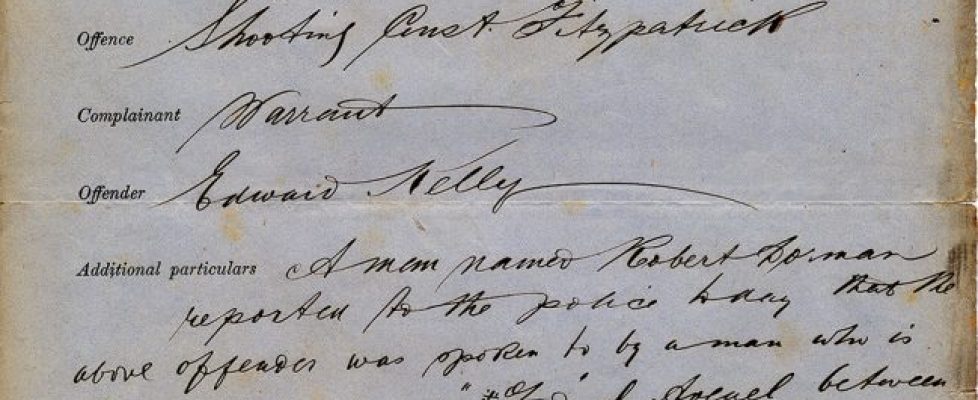 Offence Shooting Const. Fitzpatrick
Complainant Warrant
Offender Edward Kelly
Additional particulars A man named Robert Dorman
reported to the police today that the
above offender was spoken to by a man who is
between